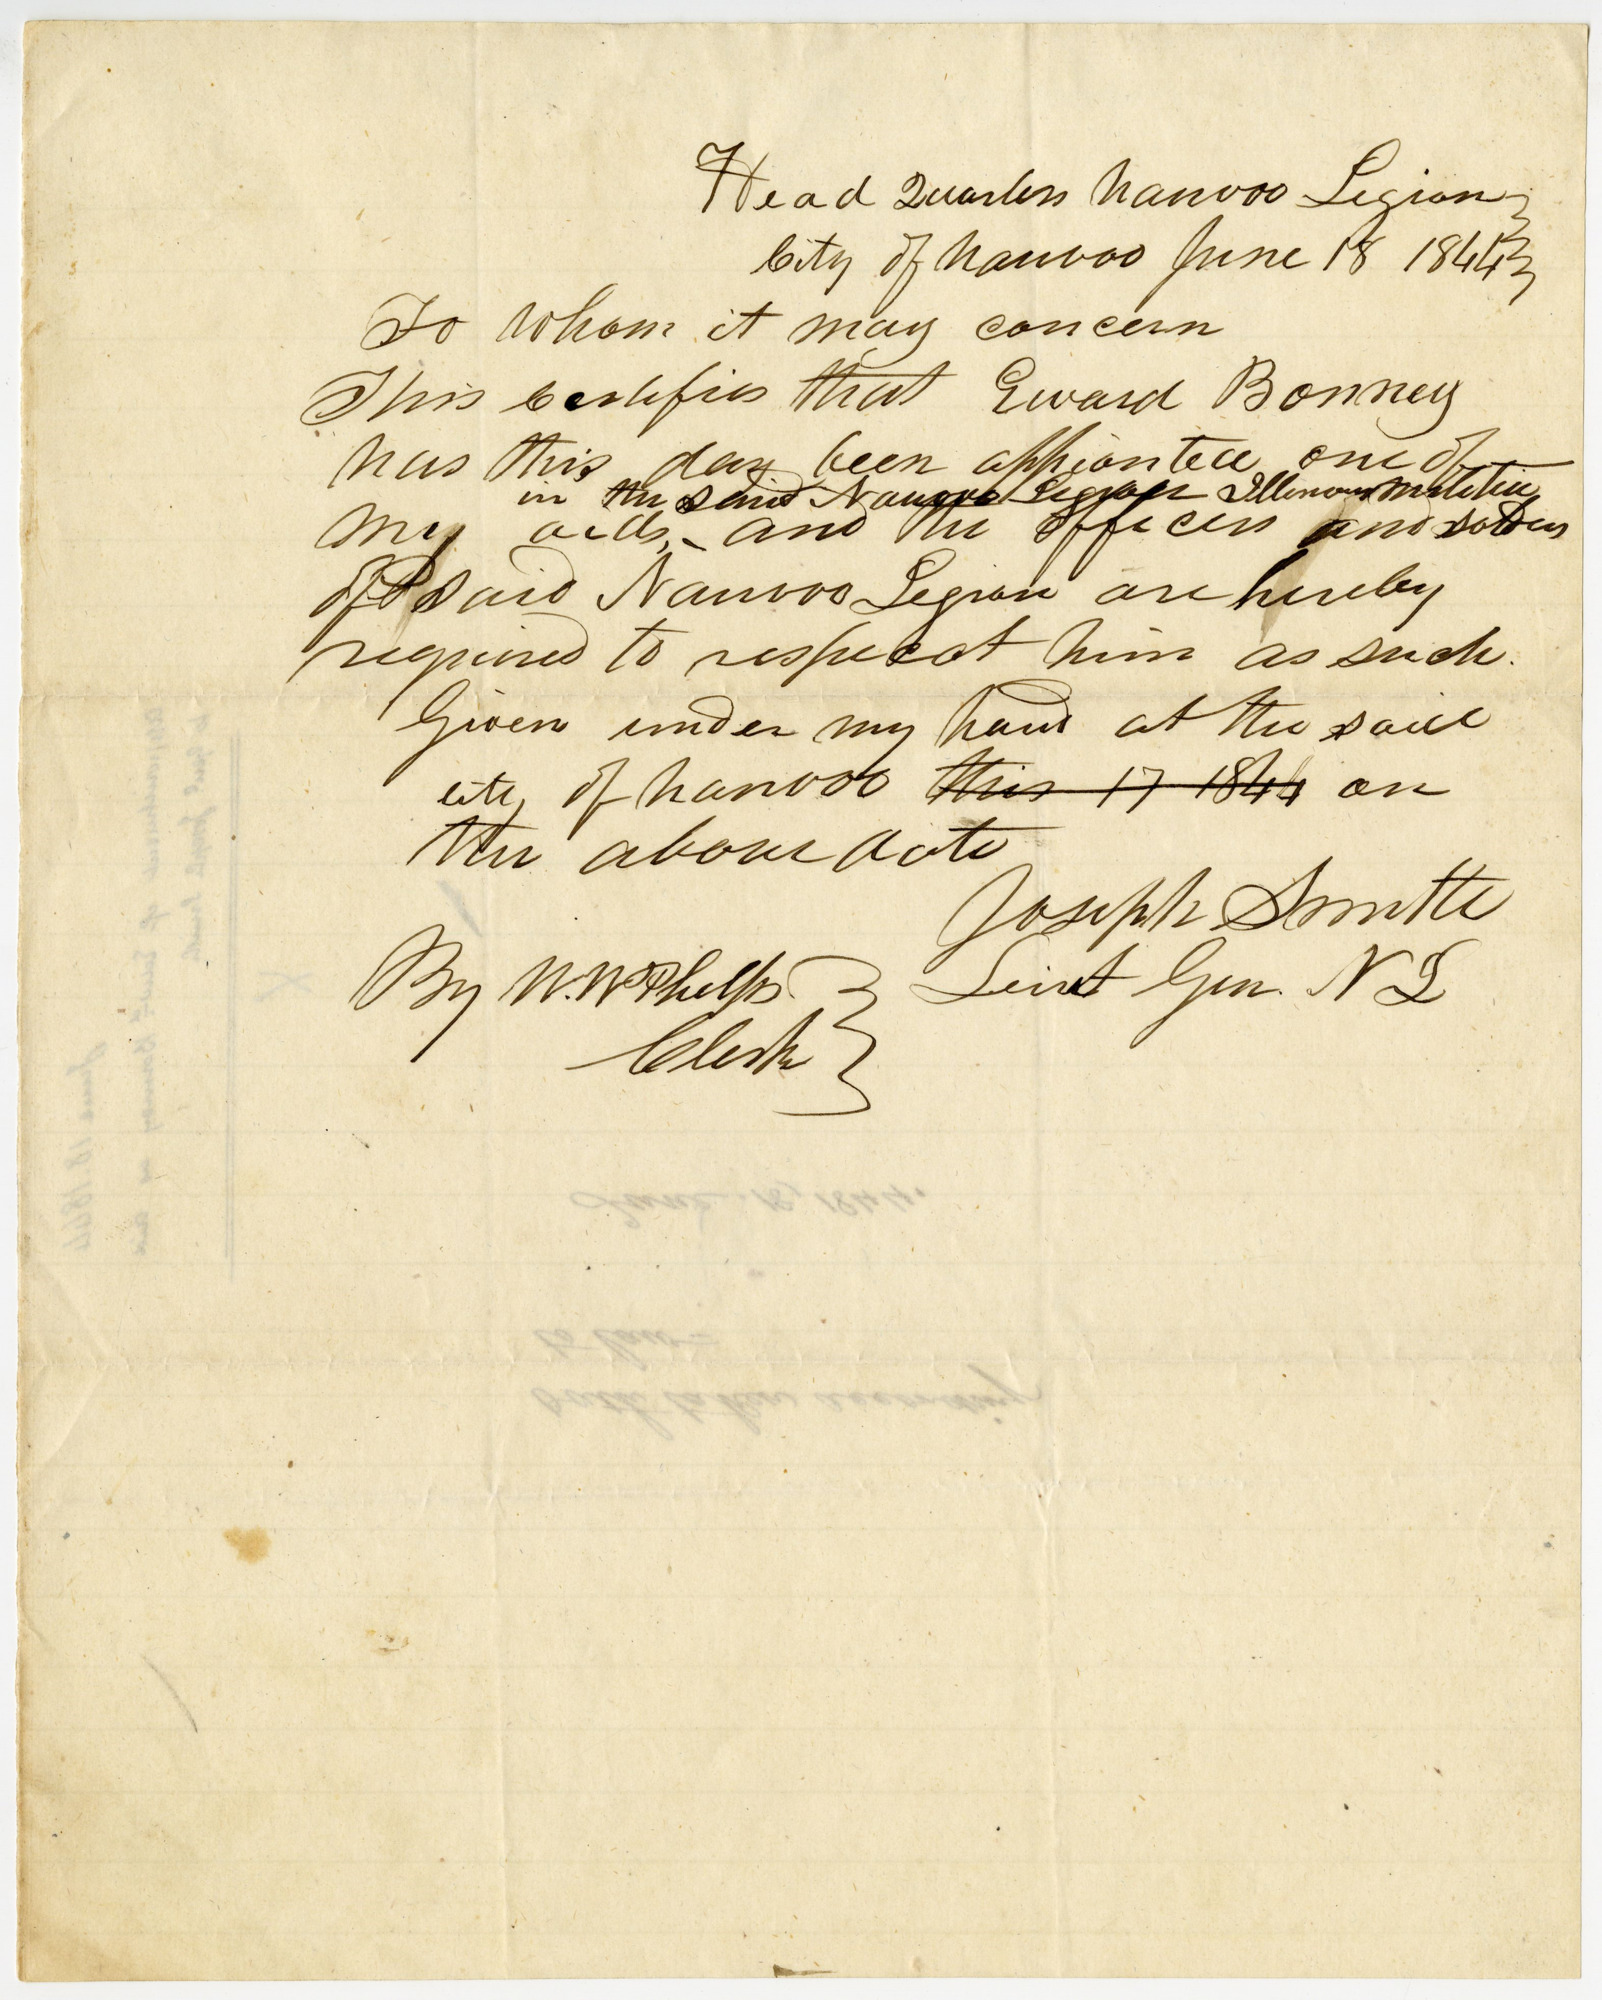 Head Quarters Nauvoo Legion
City of Nauvoo June 18 1844
To whom it may concern
This certifies that Eward Bonney
has this day been appionted one of
in the said Nauvoo Legion Illinois militia
my aids, - and the officers and soldiers
of said Nauvoo Legion are hereby
required to respecct him as such.
Given under my hand at the said
city of Nauvoo this 17 1844 on
the above date
Joseph Smith
By W. W. Phelps Leiut Gen. N L
Clerk
June 18 1844
June 18, 1844.
to law
oath taken according